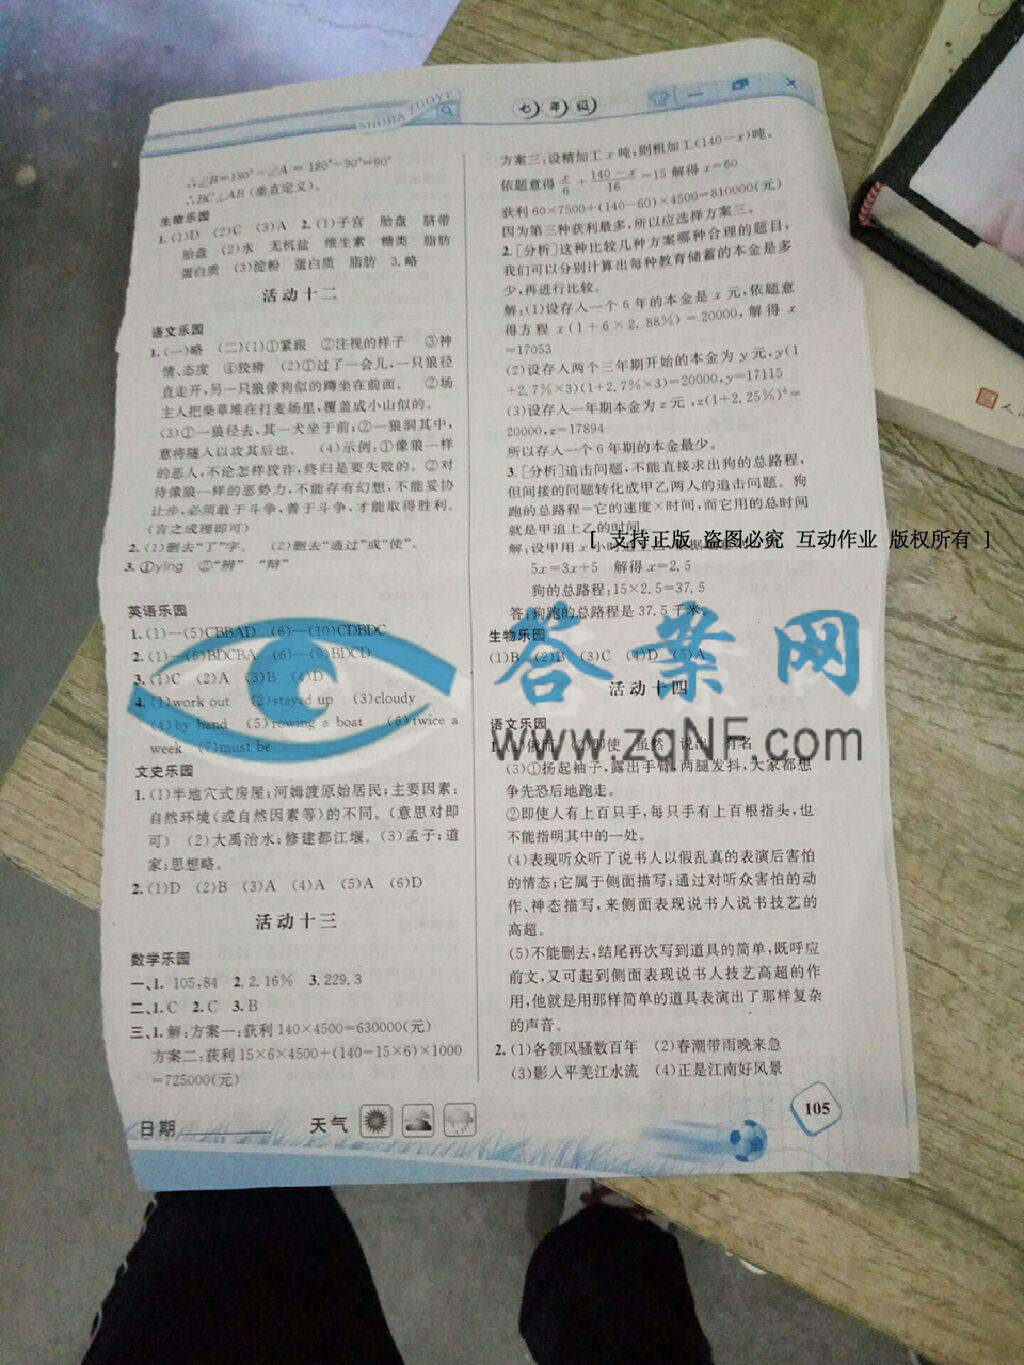 SHUJIA ZUOYE
七年级
∴∠B=180°-∠A=180°-90°=90°
∴BC⊥AB(垂直定义)。
生物乐园
1.(1)D (2)C (3)A 2.(1)子宫 胎盘 脐带
胎盘 (2)水 无机盐 维生素 糖类 脂肪
蛋白质 (3)淀粉 蛋白质 脂肪 3.略
活动十二
语文乐园
1.(一)略 (二)(1)①紧跟 ②注视的样子 ③神
情、态度 ④狡猾 (2)①过了一会儿,一只狼径
直走开,另一只狼像狗似的蹲坐在前面。 ②场
主人把柴草堆在打麦场里,覆盖成小山似的。
(3)①一狼径去,其一犬坐于前;②一狼洞其中,
意将隧入以攻其后也。 (4)示例:①像狼一样
的恶人,不论怎样狡诈,终归是要失败的。②对
待像狼一样的恶势力,不能存有幻想,不能妥协
让步,必须敢于斗争,善于斗争,才能取得胜利。
(言之成理即可)
2.(1)删去“了”字。 (2)删去“通过”或“使”。
3.①yīng ②“辨” “辩”
英语乐园
1.(1)—(5)CBBAD (6)—(10)CDBDC
2.(1)—(5)BDCBA (6)—(9)BDCD
3.(1)C (2)A (3)B (4)D
4.(1)work out (2)stayed up (3)cloudy
(4)by hand (5)rowing a boat (6)twice a
week (7)must be
文史乐园
1.(1)半地穴式房屋;河姆渡原始居民;主要因素:
自然环境(或自然因素等)的不同。(意思对即
可) (2)大禹治水;修建都江堰。(3)孟子;道
家;思想略。
2.(1)D (2)B (3)A (4)A (5)A (6)D
活动十三
数学乐园
一、1. 105,84 2.2.16% 3.229.3
二、1.C 2.C 3.B
三、1.解:方案一:获利140×4500=630000(元)
方案二:获利15×6×4500+(140-15×6)×1000
=725000(元)
方案三:设精加工x吨,则粗加工(140-x)吨。
依题意得x/6+(140-x)/16=15 解得x=60
获利60×7500+(140-60)×4500=810000(元)
因为第三种获利最多,所以应选择方案三。
2.[分析]这种比较几种方案哪种合理的题目,
我们可以分别计算出每种教育储蓄的本金是多
少,再进行比较。
解:(1)设存入一个6年的本金是x元,依题意
得方程x(1+6×2.88%)=20000,解得x
=17053
(2)设存入两个三年期开始的本金为y元,y(1
+2.7%×3)(1+2.7%×3)=20000,y=17115
(3)设存入一年期本金为z元,z(1+2.25%)⁶=
20000,z=17894
所以存入一个6年期的本金最少。
3.[分析]追击问题,不能直接求出狗的总路程,
但间接的问题转化成甲乙两人的追击问题。狗
跑的总路程=它的速度×时间,而它用的总时间
就是甲追上乙的时间。
[ 支持正版 盗图必究 互动作业 版权所有 ]
解:设甲用x小时追上乙
5x=3x+5 解得x=2.5
狗的总路程:15×2.5=37.5
答:狗跑的总路程是37.5千米。
生物乐园
(1)B (2)B (3)C (4)D (5)A
活动十四
语文乐园
1.(1)俄而 (2)即使 虽然 说出 有名
(3)①扬起袖子,露出手臂,两腿发抖,大家都想
争先恐后地跑走。
②即使人有上百只手,每只手有上百根指头,也
不能指明其中的一处。
(4)表现听众听了说书人以假乱真的表演后害怕
的情态;它属于侧面描写;通过对听众害怕的动
作、神态描写,来侧面表现说书人说书技艺的
高超。
(5)不能删去,结尾再次写到道具的简单,既呼应
前文,又可起到侧面表现说书人技艺高超的作
用,他就是用那样简单的道具表演出了那样复杂
的声音。
2.(1)各领风骚数百年 (2)春潮带雨晚来急
(3)影入平羌江水流 (4)正是江南好风景
答案网
www.zqNF.com
日期
天气
105